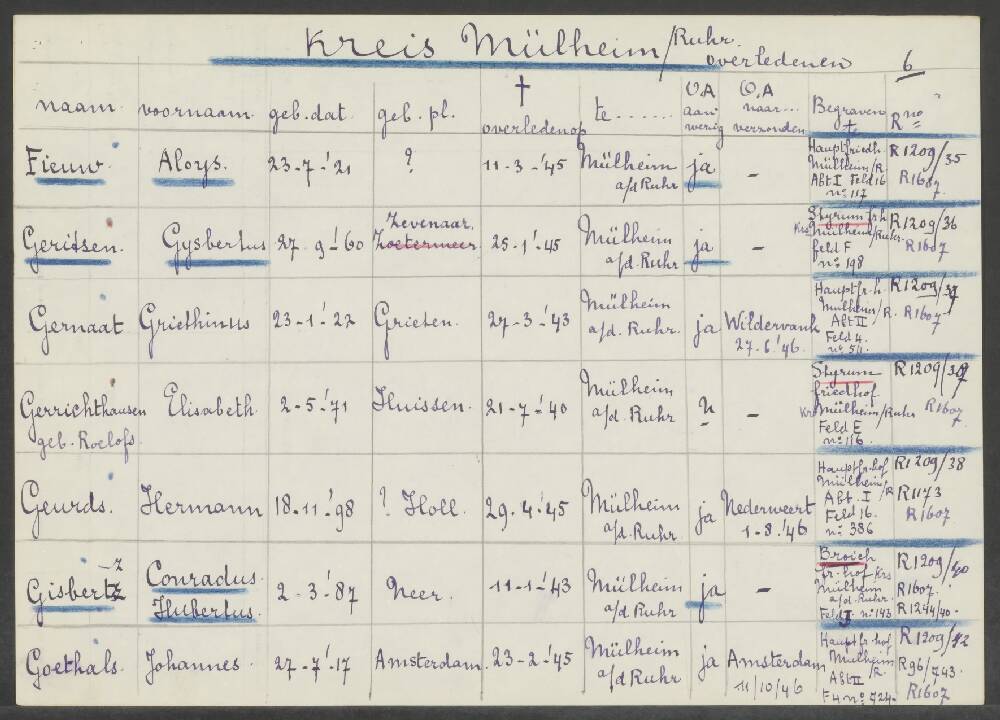 Kreis Mülheim/Ruhr.
overledenen 6
naam. voornaam. geb.dat. geb. pl. † overleden op te....... O.A aan wezig O.A naar... verzonden Begraven te R no
Fieuw. Aloys. 23-7-'21 ? 11-3-'45 Mülheim a/d Ruhr ja - Hauptfriedh. Mülheim/R. Abt I Feld 16 no 117 R1209/35 R1607.
Geritsen. Gysbertus 27-9-'60 Zevenaar. Zoetermeer 25-1-'45 Mülheim a/d. Ruhr ja - Styrum fr.h Krs Mülheim/Ruhr. feld F no 198 R1209/36 R1607
Gernaat Griethinus 23-1-'22 Grieten. 27-3-'43 Mülheim a/d. Ruhr. ja Wildervank 27.6.'46. Hauptfr.h. Mülheim/R. Abt II Feld 4. no 511. R1209/37 R1607
Gerrichthausen geb. Roelofs. Elisabeth. 2-5-'71 Huissen. 21-7-'40 Mülheim a/d. Ruhr n - Styrum friedhof Krs Mülheim/Ruhr Feld E no 116. R1209/39 R1607
Geurds. Hermann 18-11-'98 ? Holl. 29-4-'45 Mülheim a/d. Ruhr ja Nederweert 1-8-'46 Hauptfr.hof Mülheim/R Abt. I Feld 16. no 386 R1209/38 R1173 R1607
Gisbertz z Conradus. Hubertus. 2-3-'87 Neer. 11-1-'43 Mülheim a/d Ruhr ja - Broich fr.hof Krs Mülheim a/d. Ruhr. Feld J no 143 R1209/40 R1607. R1244/40-
Goethals. Johannes. 27-7-'17 Amsterdam. 23-2-'45 Mülheim a/d Ruhr ja Amsterdam 11/10/46 Hauptfr.hof Mülheim/R. Abt II F4 no 724. R1209/42 R96/743. R1607